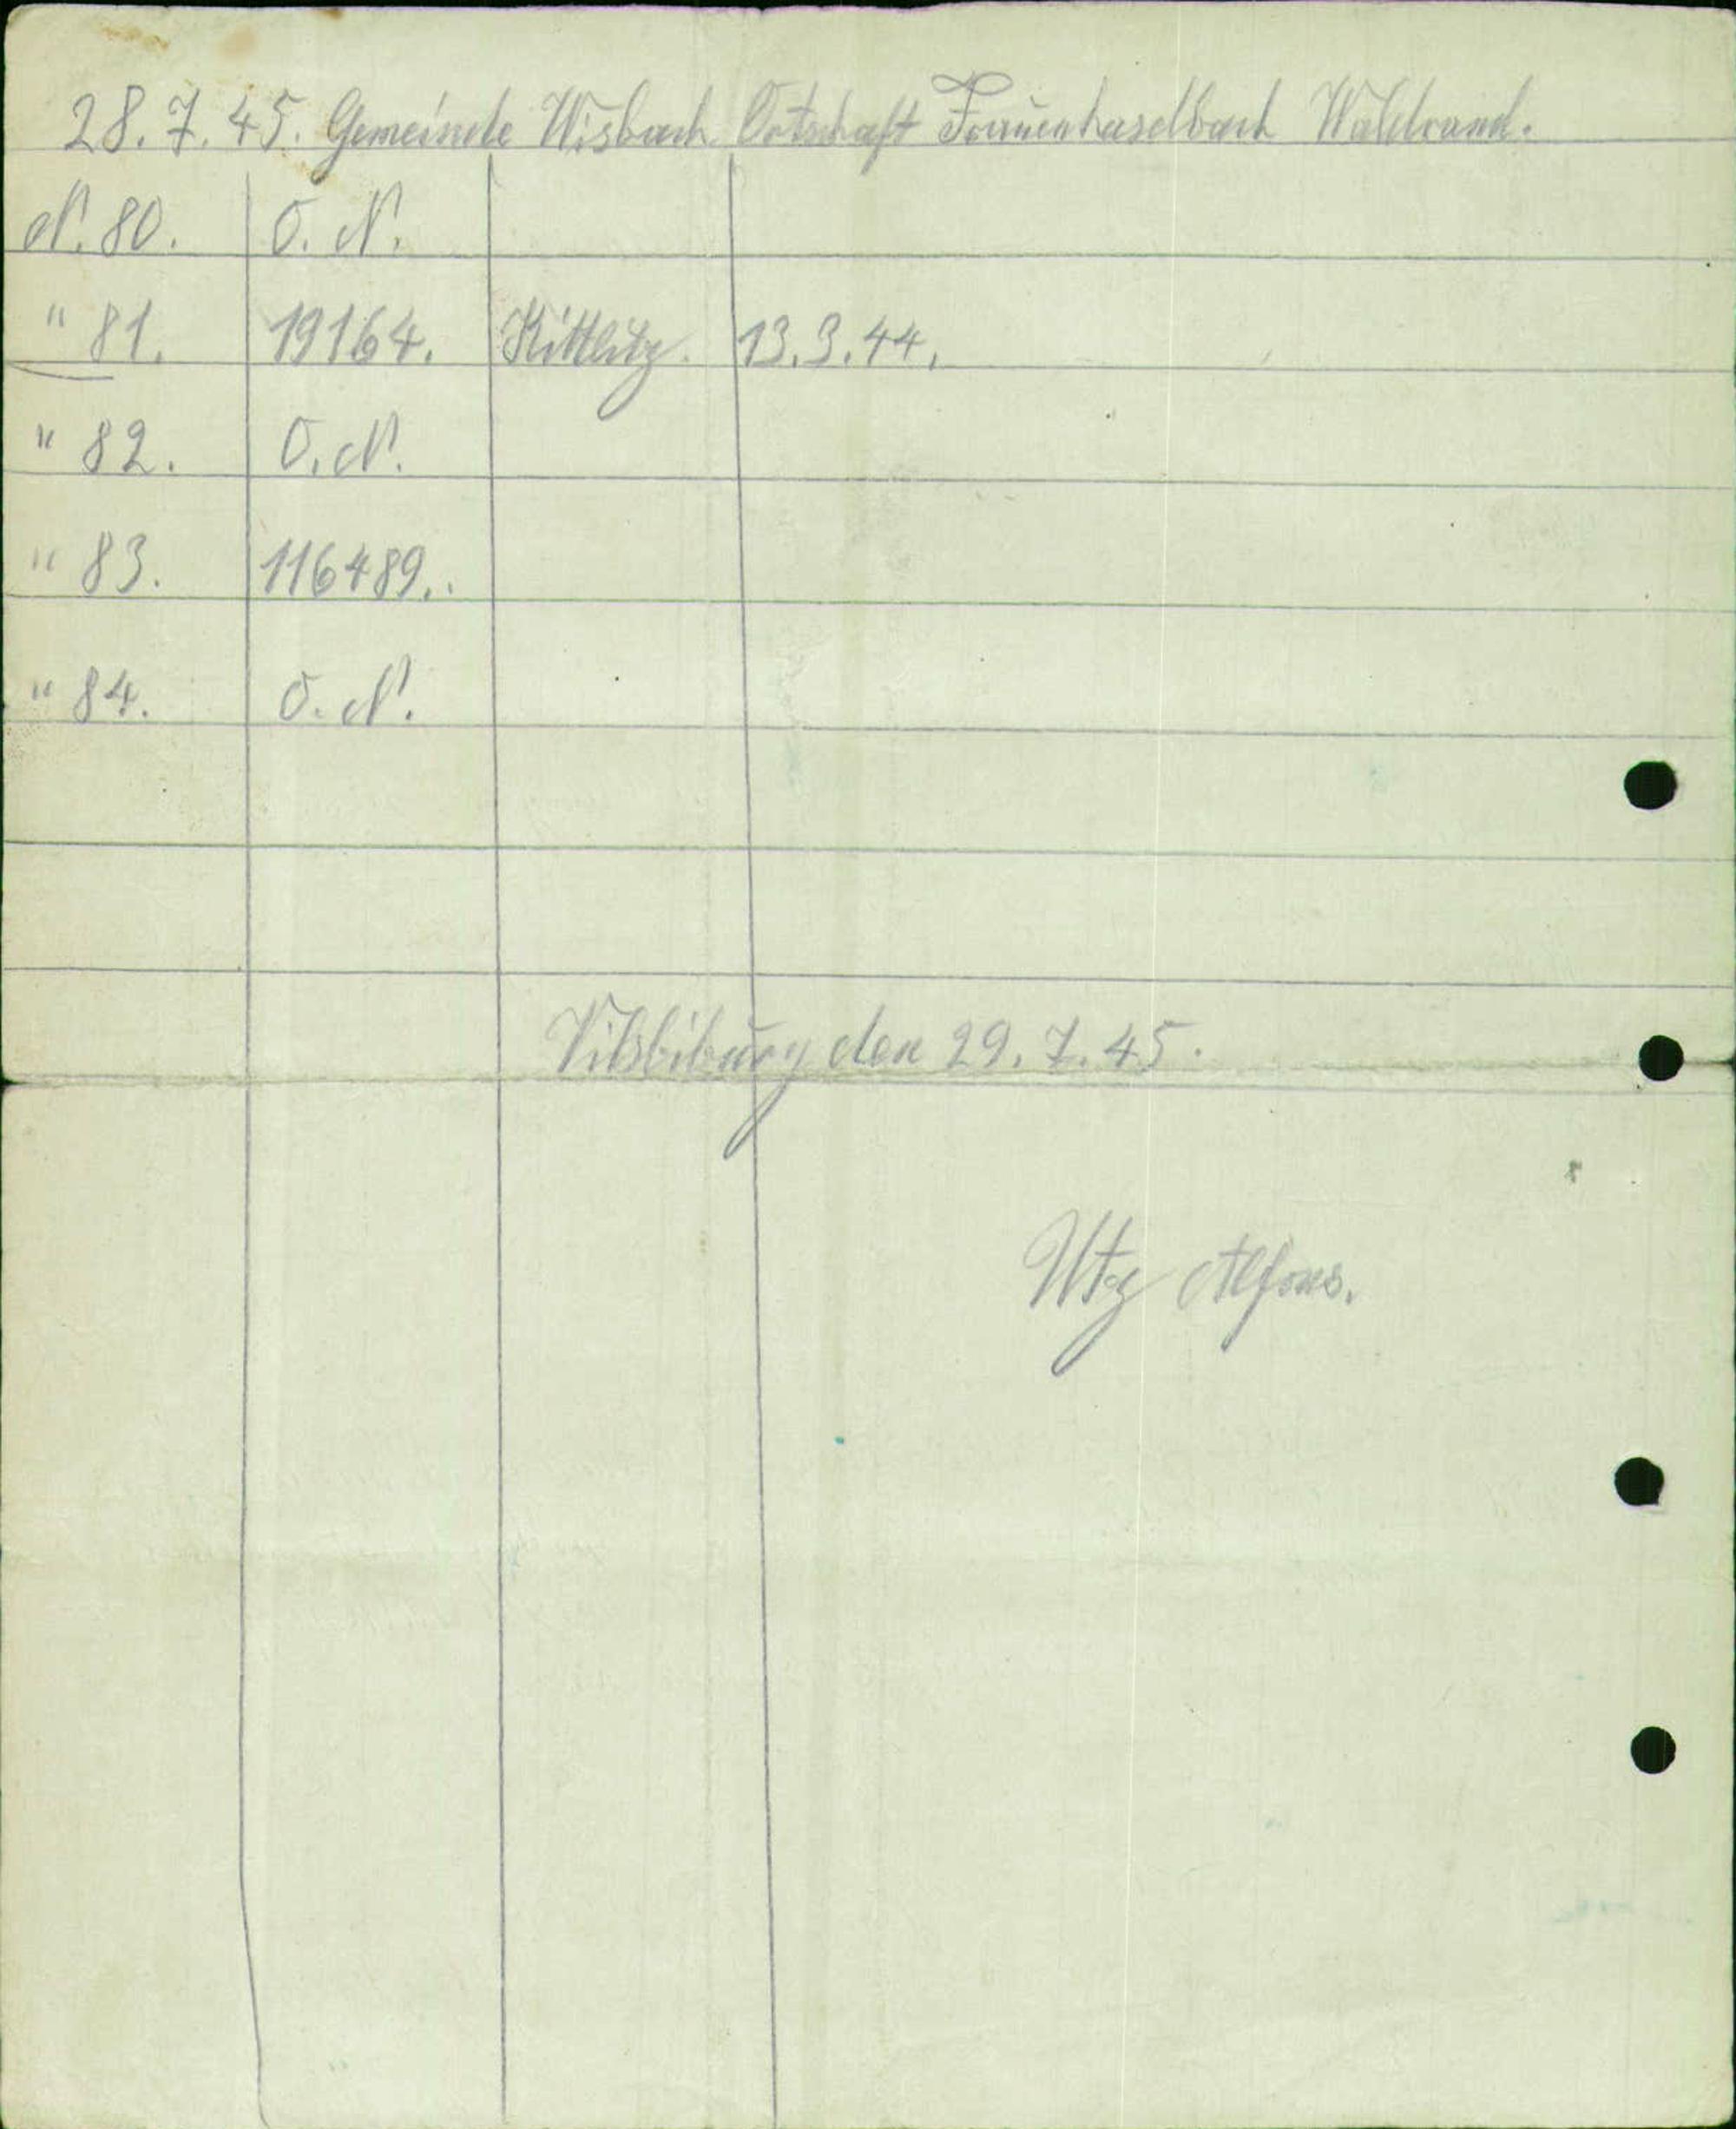 28. 7. 45. Gemeinde Wisbach Ortschaft Frauenhaselbach Waldrand.
N. 80. O. N.
" 81. 19164. Kittlitz. 13. 3. 44.
" 82. O. N.
" 83. 116489..
" 84. O. N.
Vilsbiburg den 29. 7. 45.
Utz Alfons.